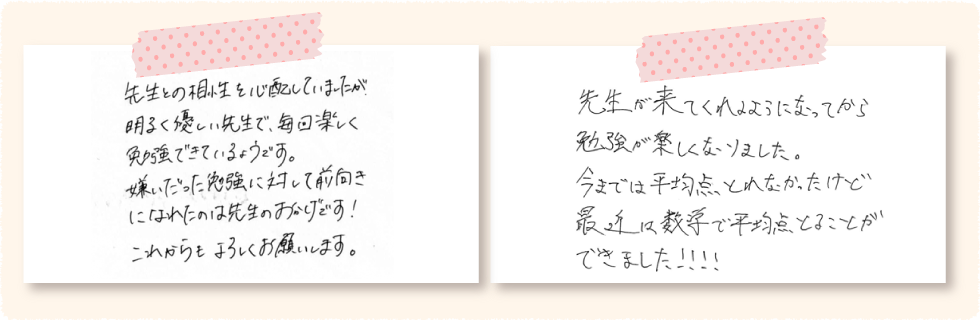 先生との相性を心配していましたが
明るく優しい先生で、毎回楽しく
勉強できているようです。
嫌いだった勉強に対して前向き
になれたのは先生のおかげです！
これからもよろしくお願いします。
先生が来てくれるようになってから
勉強が楽しくなりました。
今までは平均点とれなかったけど
最近は数学で平均点とることが
できました！！！！